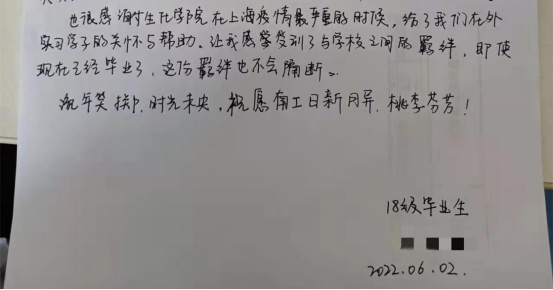 也很感谢生化学院在上海疫情最严重的时候，给了我们在外
实习学子的关怀与帮助。让我感受到了与学校之间的羁绊，即使
现在已经毕业了，这份羁绊也不会隔断。
流年笑掷，时光未央，祝愿南工日新月异，桃李芬芳！
18级毕业生
2022.06.02.